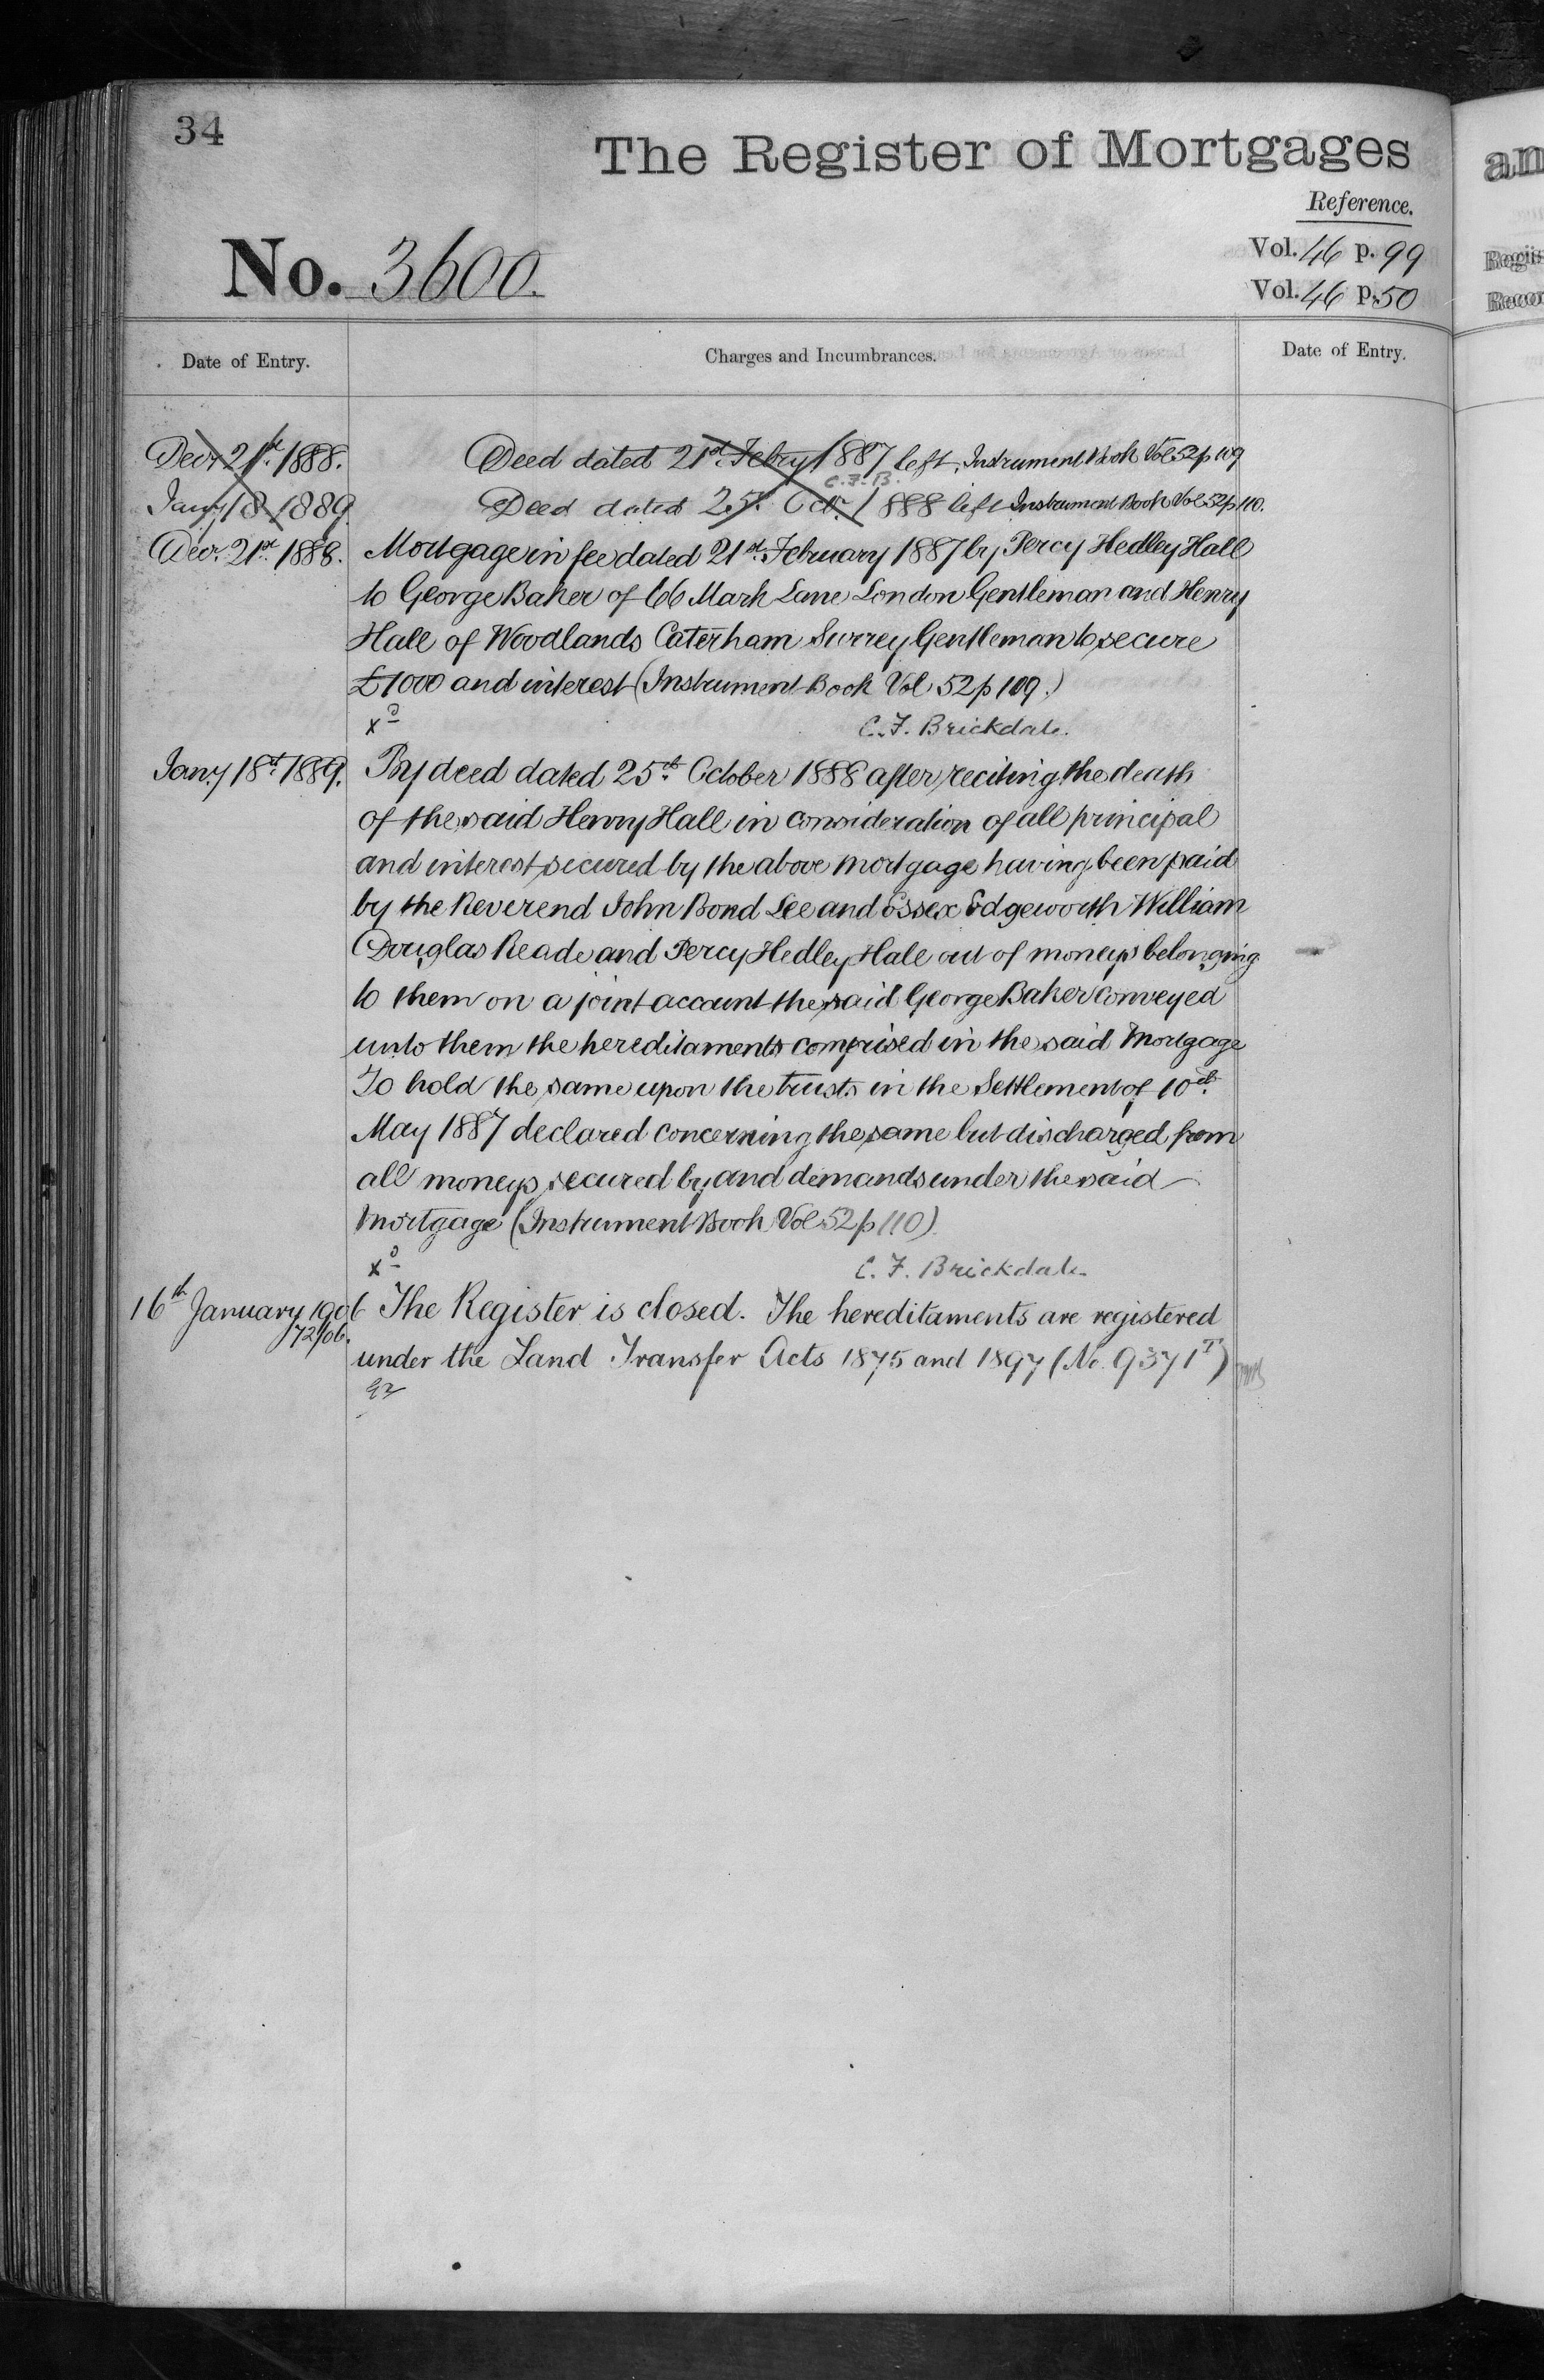 34
The Register of Mortgages
Reference.
Vol. 46 p. 99
No. 3600.
Vol. 46 p. 50
Date of Entry.
Charges and Incumbrances.
Date of Entry.
Decr 21st 1888. Deed dated 21st Febry 1887 left, Instrument Book Vol 52 p 109
C.F.B.
Jany 18 1889 Deed dated 25th Octr. 1888 left Instrument Book Vol 52 p 110.
Decr. 21st 1888. Mortgage in fee dated 21st February 1887 by Percy Hedley Hall
to George Baker of 66 Mark Lane London Gentleman and Henry
Hall of Woodlands Caterham Surrey Gentleman to secure
£1000 and interest (Instrument Book Vol 52 p 109.)
xd C.F. Brickdale.
Jany 18th 1889. By deed dated 25th October 1888 after reciting the death
of the said Henry Hall in consideration of all principal
and interest secured by the above mortgage having been paid
by the Reverend John Bond Lee and Essex Edgeworth William
Douglas Reade and Percy Hedley Hall out of moneys belonging
to them on a joint account the said George Baker conveyed
unto them the hereditaments comprised in the said Mortgage
To hold the same upon the trusts in the Settlement of 10th
May 1887 declared concerning the same but discharged from
all moneys secured by and demands under the said
Mortgage (Instrument Book Vol 52 p 110)
xd C.F. Brickdale
16th January 1906 The Register is closed. The hereditaments are registered
72/06.
under the Land Transfer Acts 1875 and 1897 (No. 9371T)
an
Regis
Recor